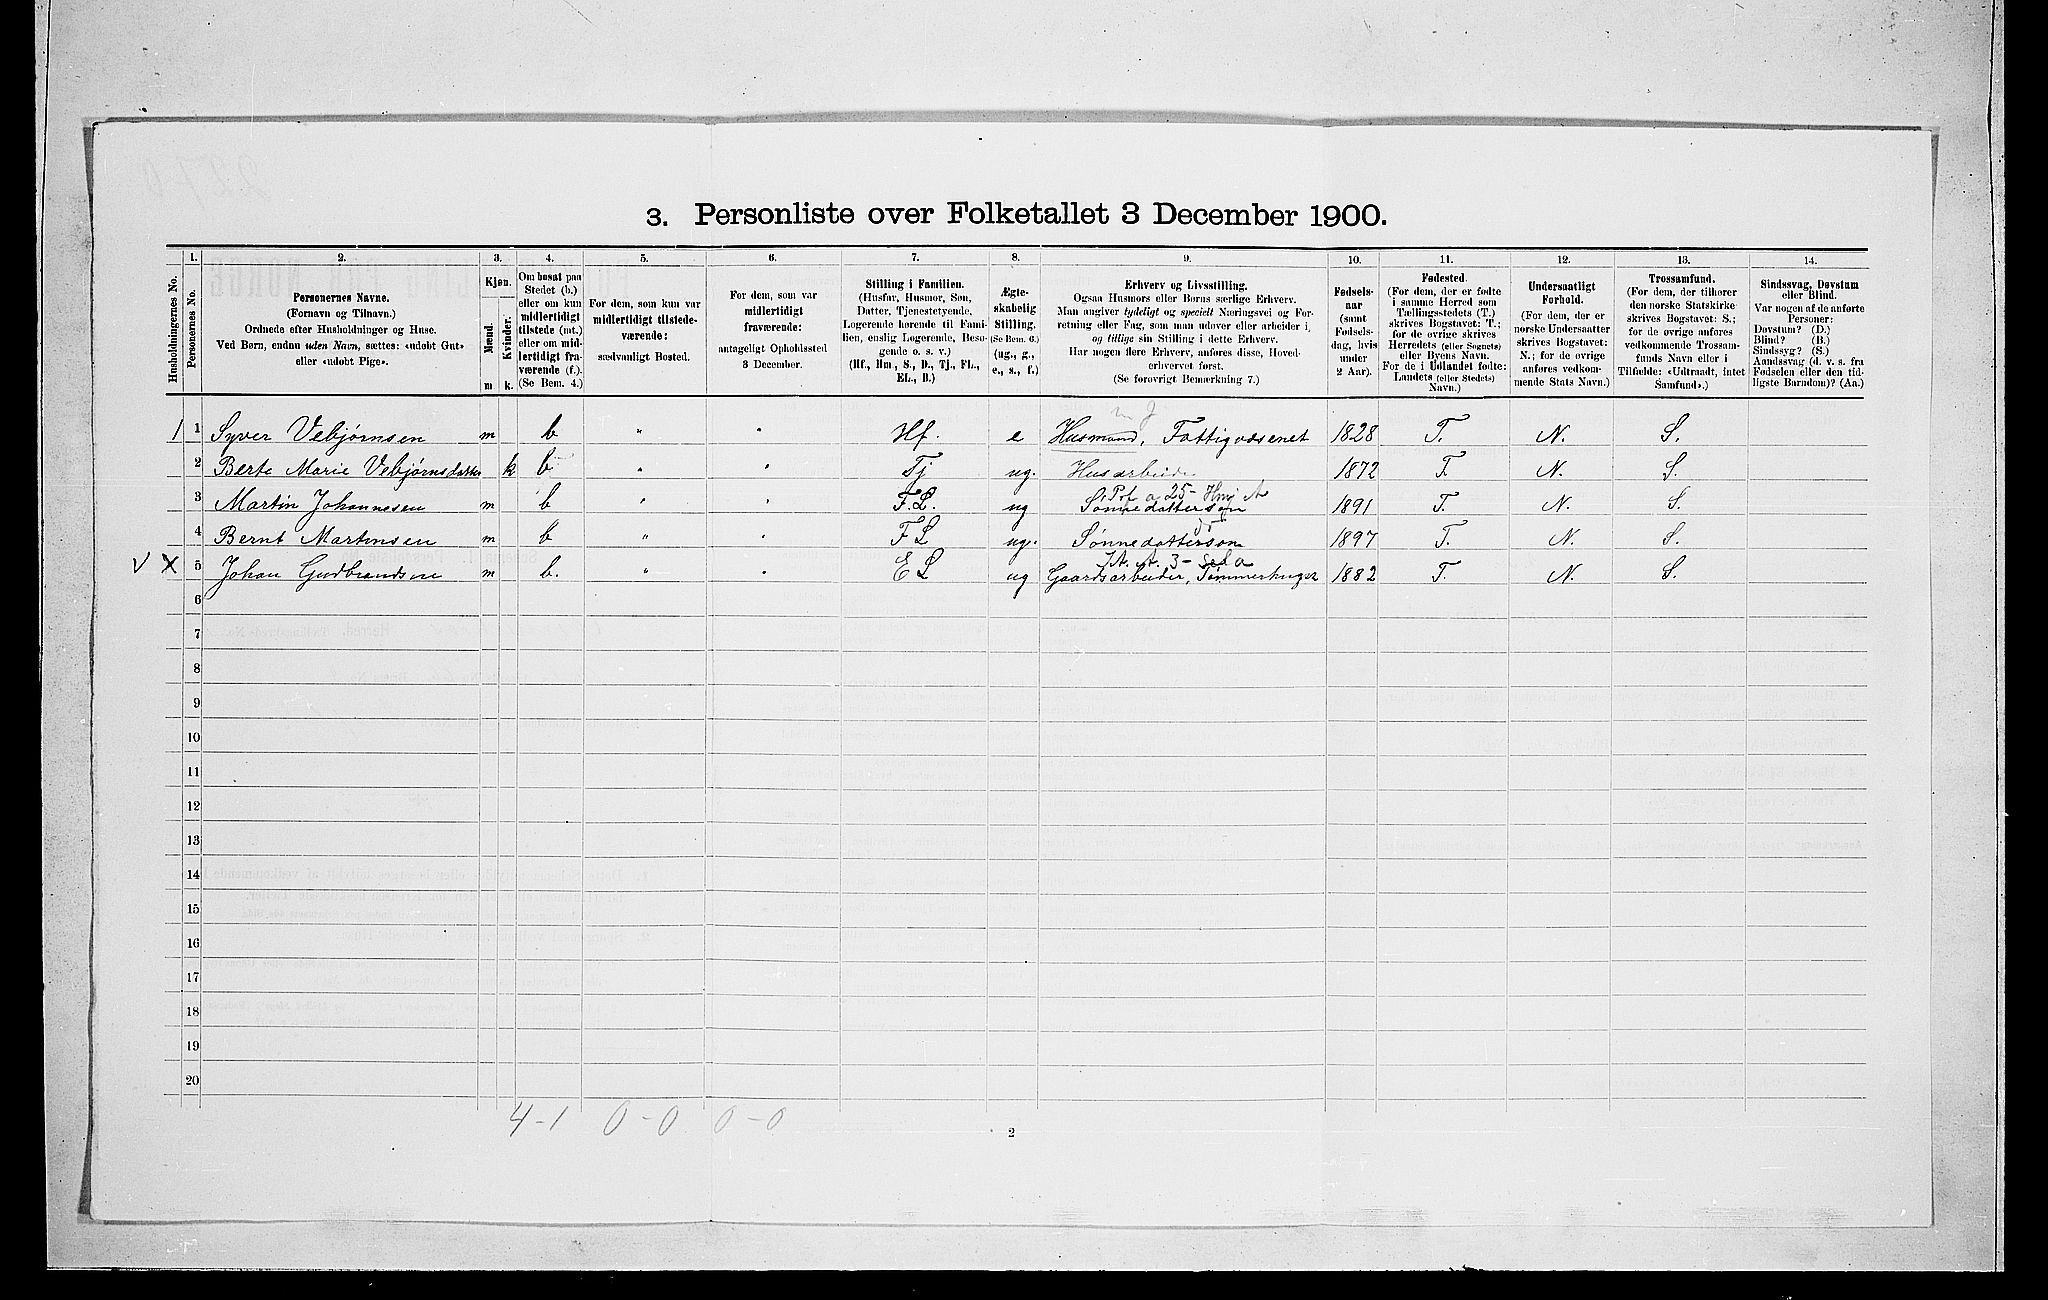 3. Personliste over Folketallet 3 December 1900.
1. 2. 3. 4. 5. 6. 7. 8. 9. 10. 11. 12. 13. 14.
Husholdningernes No.
Personernes No.
Personernes Navne.
(Fornavn og Tilnavn.)
Ordnede efter Husholdninger og Huse.
Ved Børn, endnu uden Navn, sættes: «udøbt Gut»
eller «udøbt Pige».
Kjøn.
Mænd.
Kvinder.
m k.
Om bosat paa
Stedet (b.)
eller om kun
midlertidigt
tilstede (mt.)
eller om mid-
lertidigt fra-
værende (f.).
(Se Bem. 4.)
For dem, som kun var
midlertidigt tilstede-
værende:
sædvanligt Bosted.
For dem, som var
midlertidigt
fraværende:
antageligt Opholdssted
3 December.
Stilling i Familien.
(Husfar, Husmor, Søn,
Datter, Tjenestetyende,
Logerende hørende til Fami-
lien, enslig Logerende, Besø-
gende o. s. v.)
(Hf., Hm., S., D., Tj., FL.,
EL., B.)
Ægte-
skabelig
Stilling.
(Se Bem. 6.)
(ug., g.,
e., s., f.)
Erhverv og Livsstilling.
Ogsaa Husmors eller Børns særlige Erhverv.
Man angiver tydeligt og specielt Næringsvei og For-
retning eller Fag, som man udøver eller arbeider i,
og tillige sin Stilling i dette Erhverv.
Har nogen flere Erhverv, anføres disse, Hoved-
erhvervet først.
(Se forøvrigt Bemerkning 7.)
Fødsels-
aar
(samt
Fødsels-
dag, hvis
under
2 Aar).
Fødested.
(For dem, der er fødte
i samme Herred som
Tællingsstedets (T.)
skrives Bogstavet: T.;
for de øvrige skrives
Herredets (eller Sognets)
eller Byens Navn.
For de i Udlandet fødte:
Landets (eller Stedets)
Navn.)
Undersaatligt
Forhold.
(For dem, der er
norske Undersaatter
skrives Bogstavet:
N.; for de øvrige
anføres vedkom-
mende Stats Navn.)
Trossamfund.
(For dem, der tilhører
den norske Statskirke
skrives Bogstavet: S.;
for de øvrige anføres
vedkommende Trossam-
funds Navn eller i
Tilfælde: «Udtraadt, intet
Samfund».)
Sindssvag, Døvstum
eller Blind.
Var nogen af de anførte
Personer:
Døvstum? (D.)
Blind? (B.)
Sindssyg? (S.)
Aandssvag (d. v. s. fra
Fødselen eller den tid-
ligste Barndom)? (Aa.)
1 1 Syver Vebjørnsen m b " " Hf. e Husmand, Fattigvæsenet 1828 T. N. S.
2 Berte Marie Vebjørnsdatter k b " " Tj ug. Husarbeide 1872 T. N. S.
3 Martin Johannesen m b " " F.L. ug Sønnedatterson 1891 T. N. S.
4 Bernt Martinsen m b " " FL ug. Sønnedatterson 1897 T. N. S.
V X 5 Johan Gudbrandsen m b. " " EL ug Gaardsarbeider, Tømmerhugst 1882 T. N. S.
6
7
8
9
10
11
12
13
14
15
16
17
18
19
20
4-1 0-0 0-0
2